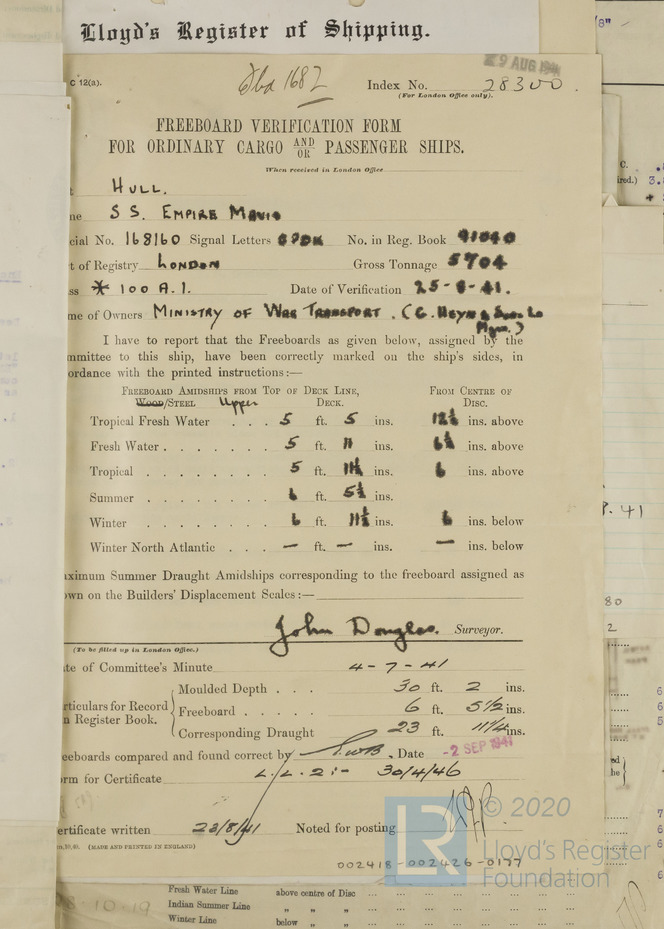 Lloyd's Register of Shipping.
29 AUG 1941
C 12(a).
1682
Index No. 28300.
(For London Office only).
FREEBOARD VERIFICATION FORM
FOR ORDINARY CARGO AND/OR PASSENGER SHIPS.
When received in London Office
HULL.
SS. EMPIRE MAVIS
cial No. 168160 Signal Letters No. in Reg. Book
t of Registry LONDON Gross Tonnage 5704
ss * 100 A.1. Date of Verification 25-8-41.
me of Owners MINISTRY OF WAR TRANSPORT. (G. HEYN & Sons Ld
Mgrs.)
I have to report that the Freeboards as given below, assigned by the
mmittee to this ship, have been correctly marked on the ship's sides, in
ordance with the printed instructions:—
FREEBOARD AMIDSHIPS FROM TOP OF DECK LINE, FROM CENTRE OF
WOOD/STEEL Upper DECK. DISC.
Tropical Fresh Water . . . 5 ft. 5 ins. 12½ ins. above
Fresh Water . . . . . . . 5 ft. 11 ins. 6½ ins. above
Tropical . . . . . . . . 5 ft. 11½ ins. 6 ins. above
Summer . . . . . . . . 6 ft. 5½ ins.
Winter . . . . . . . . 6 ft. 11½ ins. 6 ins. below
Winter North Atlantic . . . — ft. — ins. — ins. below
aximum Summer Draught Amidships corresponding to the freeboard assigned as
wn on the Builders' Displacement Scales:—
John Douglas. Surveyor.
(To be filled up in London Office.)
te of Committee's Minute 4-7-41
Moulded Depth . . . 30 ft. 2 ins.
rticulars for Record
n Register Book.
Freeboard . . . . . 6 ft. 5½ ins.
Corresponding Draught 23 ft. 11¼ ins.
eeboards compared and found correct by , Date -2 SEP 1941
orm for Certificate L.L.2:- 30/4/46
ertificate written 23/8/41 Noted for posting
(MADE AND PRINTED IN ENGLAND)
LR © 2020
Lloyd's Register
Foundation
002418-002426-0177
Fresh Water Line above centre of Disc
Indian Summer Line " "
Winter Line below " "